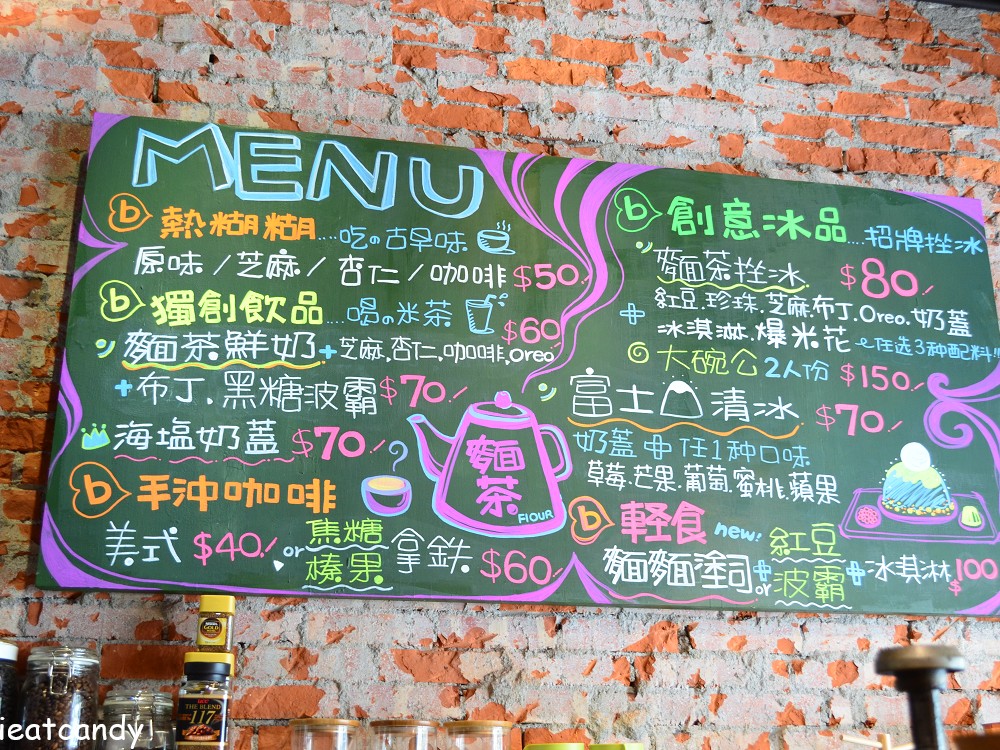 MENU
b 熱糊糊....吃の古早味
原味/芝麻/杏仁/咖啡 $50
b 獨創飲品....喝の米茶
麵茶鮮奶+芝麻,杏仁,咖啡,Oreo $60
+布丁.黑糖波霸 $70
海塩奶蓋 $70
b 手沖咖啡
美式 $40 or 焦糖 榛果 拿鉄 $60
麵茶
FlOUR
b 創意冰品....招牌挫冰
麵茶挫冰 $80
+紅豆.珍珠.芝麻布丁.Oreo.奶蓋
冰淇淋.爆米花 任选3种配料!!
大碗公 2人份 $150
富士山清冰 $70
奶蓋 中 任1种口味
草莓.芒果.葡萄.蜜桃.蘋果
b 軽食 new!
麵麵塗司+紅豆 or 波霸+冰淇淋 $100
GOLD
THE BLEND
117
ieatcandy